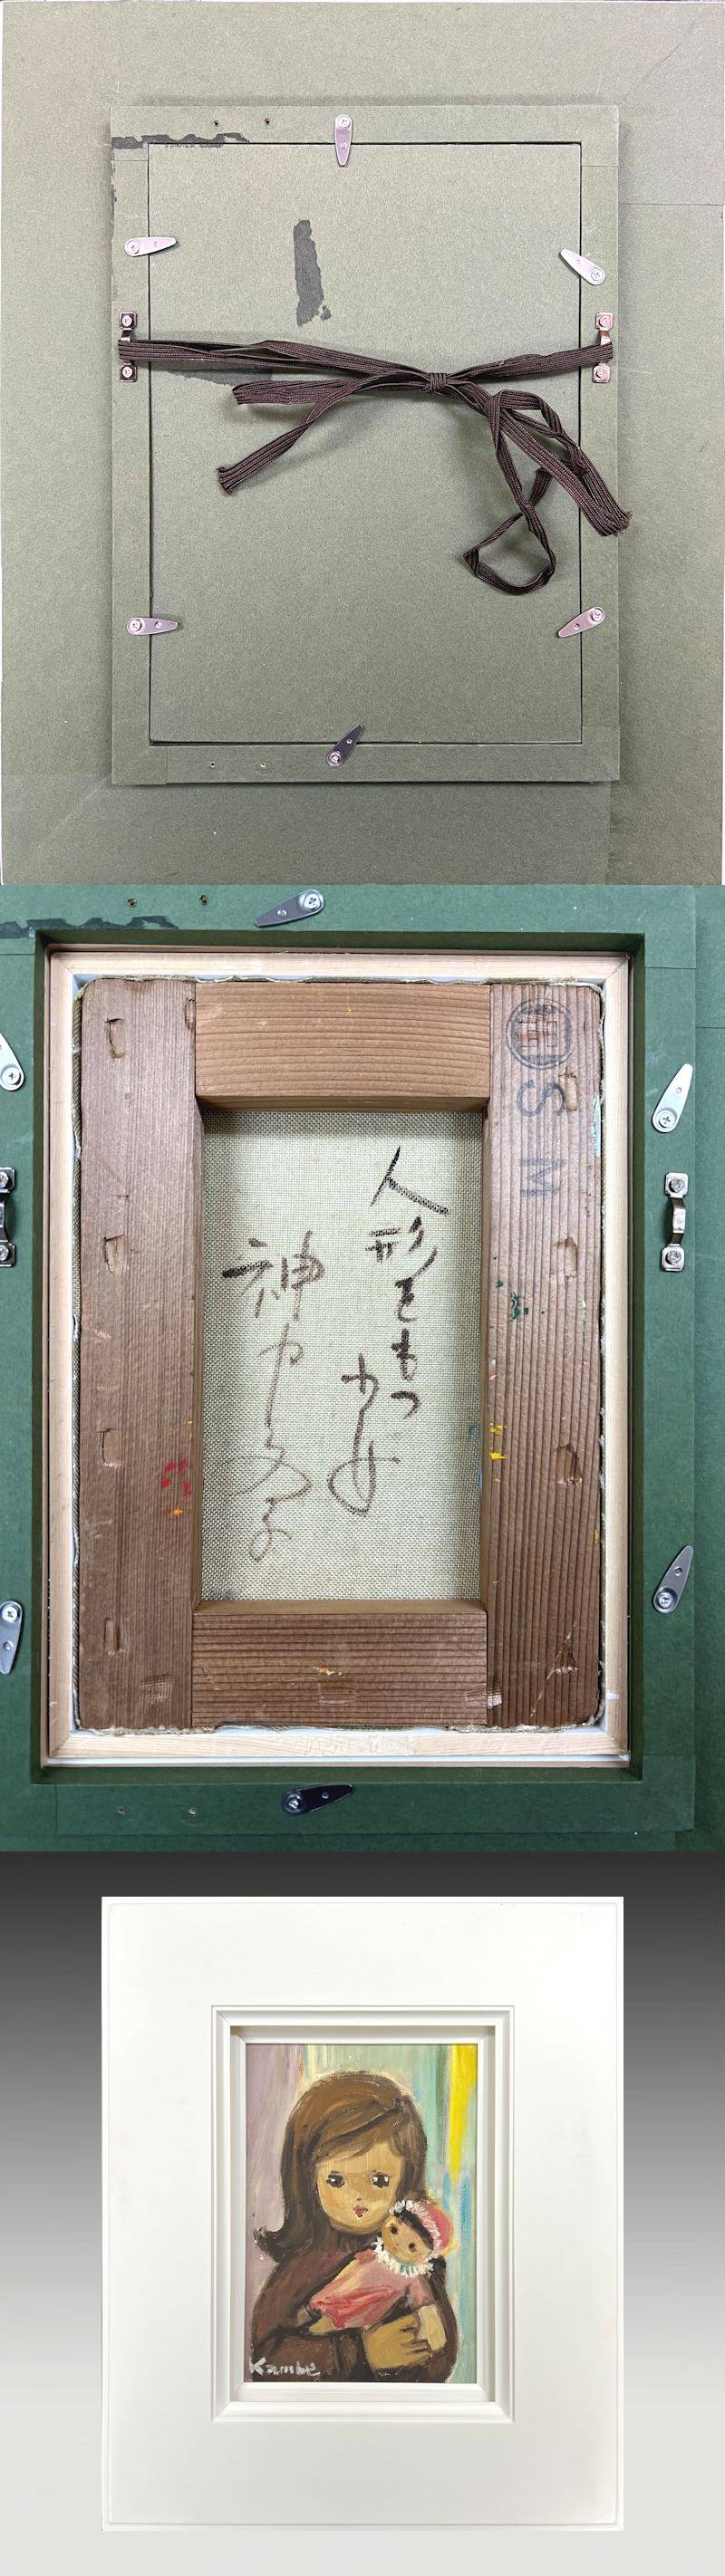 SM
人形をもつ
少女
神戸文子
Kambe